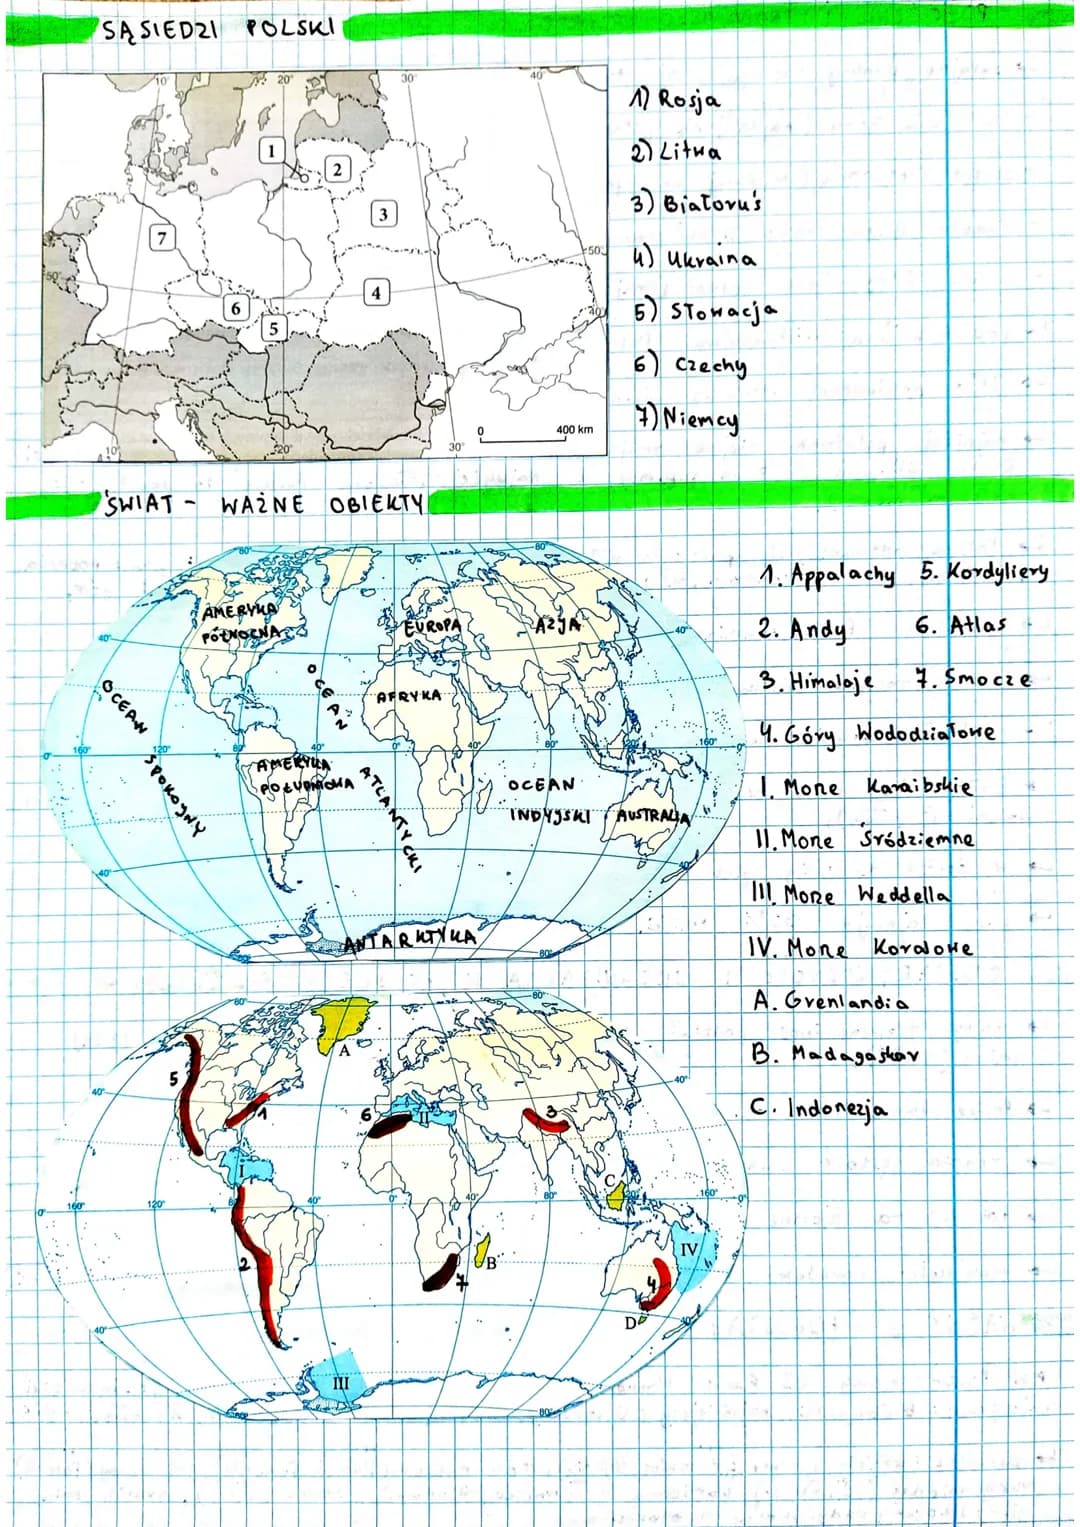 SĄSIEDZI POLSKI
10° 20° 30° 40°
1
2
3
7
50°
50°
4
6
5
40°
0 400 km
10° 20° 30°
1) Rosja
2) Litwa
3) Białoruś
4) Ukraina
5) Słowacja
6) Czechy
7) Niemcy
ŚWIAT - WAŻNE OBIEKTY
80° 80°
AMERYKA
PÓŁNOCNA
EUROPA
AZJA
40° 40°
OCEAN
SPOKOJNY
OCEAN
ATLANTYCKI
AFRYKA
0° 160° 120° 80° 40° 0° 40° 80° 120° 160° 0°
AMERYKA
POŁUDNIOWA
OCEAN
INDYJSKI
AUSTRALIA
40° 40°
ANTARKTYKA
80° 80°
1. Appalachy 5. Kordyliery
2. Andy 6. Atlas
3. Himalaje 7. Smocze
4. Góry Wododziałowe
I. Morze Karaibskie
II. Morze Śródziemne
III. Morze Weddella
IV. Morze Koralowe
A. Grenlandia
B. Madagaskar
C. Indonezja
80° 80°
A
5
40° 40°
1
6
II
3
I
C
0° 160° 120° 80° 40° 0° 40° 80° 120° 160° 0°
2
B
7
IV
4
D
40° 40°
III
80° 80°